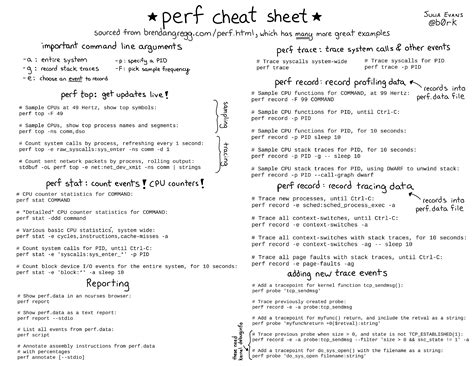 ★ perf cheat sheet ★
JULIA EVANS
@b0rk
sourced from brendangregg.com/perf.html, which has many more great examples
important command line arguments
-a : entire system
-p : specify a PID
-g : record stack traces
-F : pick sample frequency
-e : choose an event to record
perf top: get updates live!
# Sample CPUs at 49 Hertz, show top symbols:
perf top -F 49
# Sample CPUs, show top process names and segments:
perf top -ns comm,dso
sampling
# Count system calls by process, refreshing every 1 second:
perf top -e raw_syscalls:sys_enter -ns comm -d 1
# Count sent network packets by process, rolling output:
stdbuf -oL perf top -e net:net_dev_xmit -ns comm | strings
tracing
perf stat: count events! CPU counters!
# CPU counter statistics for COMMAND:
perf stat COMMAND
# *Detailed* CPU counter statistics for COMMAND:
perf stat -ddd command
# Various basic CPU statistics, system wide:
perf stat -e cycles,instructions,cache-misses -a
# Count system calls for PID, until Ctrl-C:
perf stat -e 'syscalls:sys_enter_*' -p PID
# Count block device I/O events for the entire system, for 10 seconds:
perf stat -e 'block:*' -a sleep 10
Reporting
# Show perf.data in an ncurses browser:
perf report
# Show perf.data as a text report:
perf report --stdio
# List all events from perf.data:
perf script
# Annotate assembly instructions from perf.data
# with percentages
perf annotate [--stdio]
perf trace: trace system calls & other events
# Trace syscalls system-wide
perf trace
# Trace syscalls for PID
perf trace -p PID
perf record: record profiling data
records into
perf.data file
# Sample CPU functions for COMMAND, at 99 Hertz:
perf record -F 99 COMMAND
# Sample CPU functions for PID, until Ctrl-C:
perf record -p PID
# Sample CPU functions for PID, for 10 seconds:
perf record -p PID sleep 10
# Sample CPU stack traces for PID, for 10 seconds:
perf record -p PID -g -- sleep 10
# Sample CPU stack traces for PID, using DWARF to unwind stack:
perf record -p PID --call-graph dwarf
perf record: record tracing data
records into
perf.data file
# Trace new processes, until Ctrl-C:
perf record -e sched:sched_process_exec -a
# Trace all context-switches, until Ctrl-C:
perf record -e context-switches -a
# Trace all context-switches with stack traces, for 10 seconds:
perf record -e context-switches -ag -- sleep 10
# Trace all page faults with stack traces, until Ctrl-C:
perf record -e page-faults -ag
adding new trace events
# Add a tracepoint for kernel function tcp_sendmsg():
perf probe 'tcp_sendmsg'
# Trace previously created probe:
perf record -e -a probe:tcp_sendmsg
# Add a tracepoint for myfunc() return, and include the retval as a string:
perf probe 'myfunc%return +0($retval):string'
# Trace previous probe when size > 0, and state is not TCP_ESTABLISHED(1):
perf record -e -a probe:tcp_sendmsg --filter 'size > 0 && skc_state != 1' -a
# Add a tracepoint for do_sys_open() with the filename as a string:
perf probe 'do_sys_open filename:string'
these need
kernel debuginfo